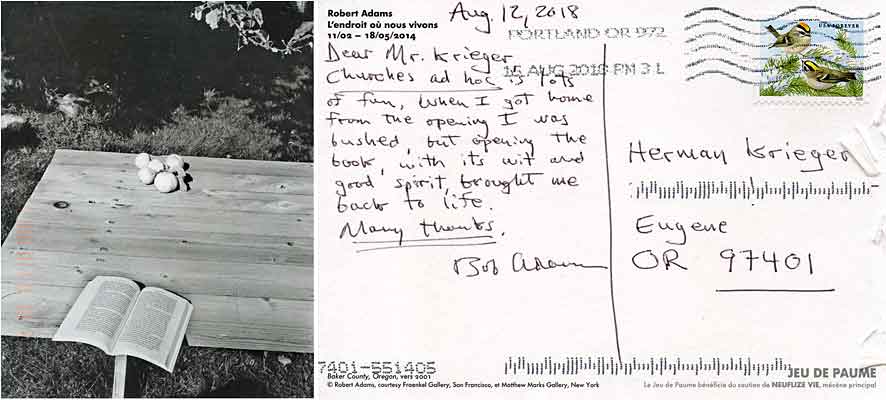 Robert Adams
L'endroit où nous vivons
11/02 – 18/05/2014
Aug. 12, 2018
PORTLAND OR 972
15 AUG 2018 PM 3 L
USA FOREVER
Dear Mr. Krieger
Churches ad hoc is lots
of fun, When I got home
from the opening I was
bushed, but opening the
book, with its wit and
good spirit, brought me
back to life.
Many thanks.
Bob Adams
Herman Krieger
Eugene
OR 97401
7401-551405
Baker County, Oregon, vers 2001
© Robert Adams, courtesy Fraenkel Gallery, San Francisco, et Matthew Marks Gallery, New York
JEU DE PAUME
Le Jeu de Paume bénéficie du soutien de NEUFLIZE VIE, mécène principal